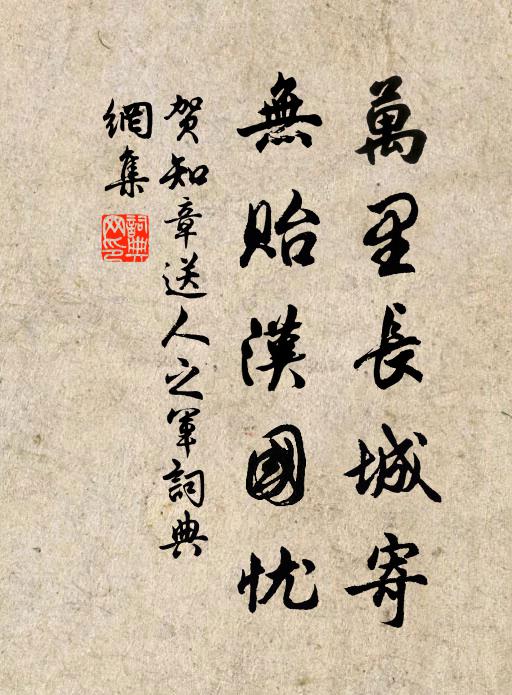 萬里長城寄
無貽漢國忧
贺知章送人之軍詞典
網集
詞典
网印